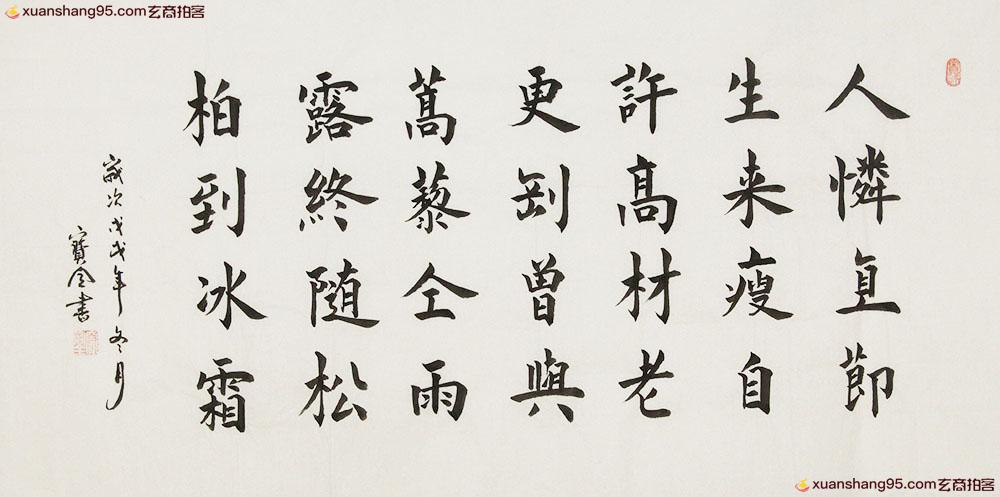 xuanshang95.com玄商拍客
xuanshang95.com玄商拍客
人憐直節
生来瘦自
許髙材老
更剛曾與
蒿藜仝雨
露終随松
柏到冰霜
歲次戊戌年冬月
寶金書
xuanshang95.com玄商拍客